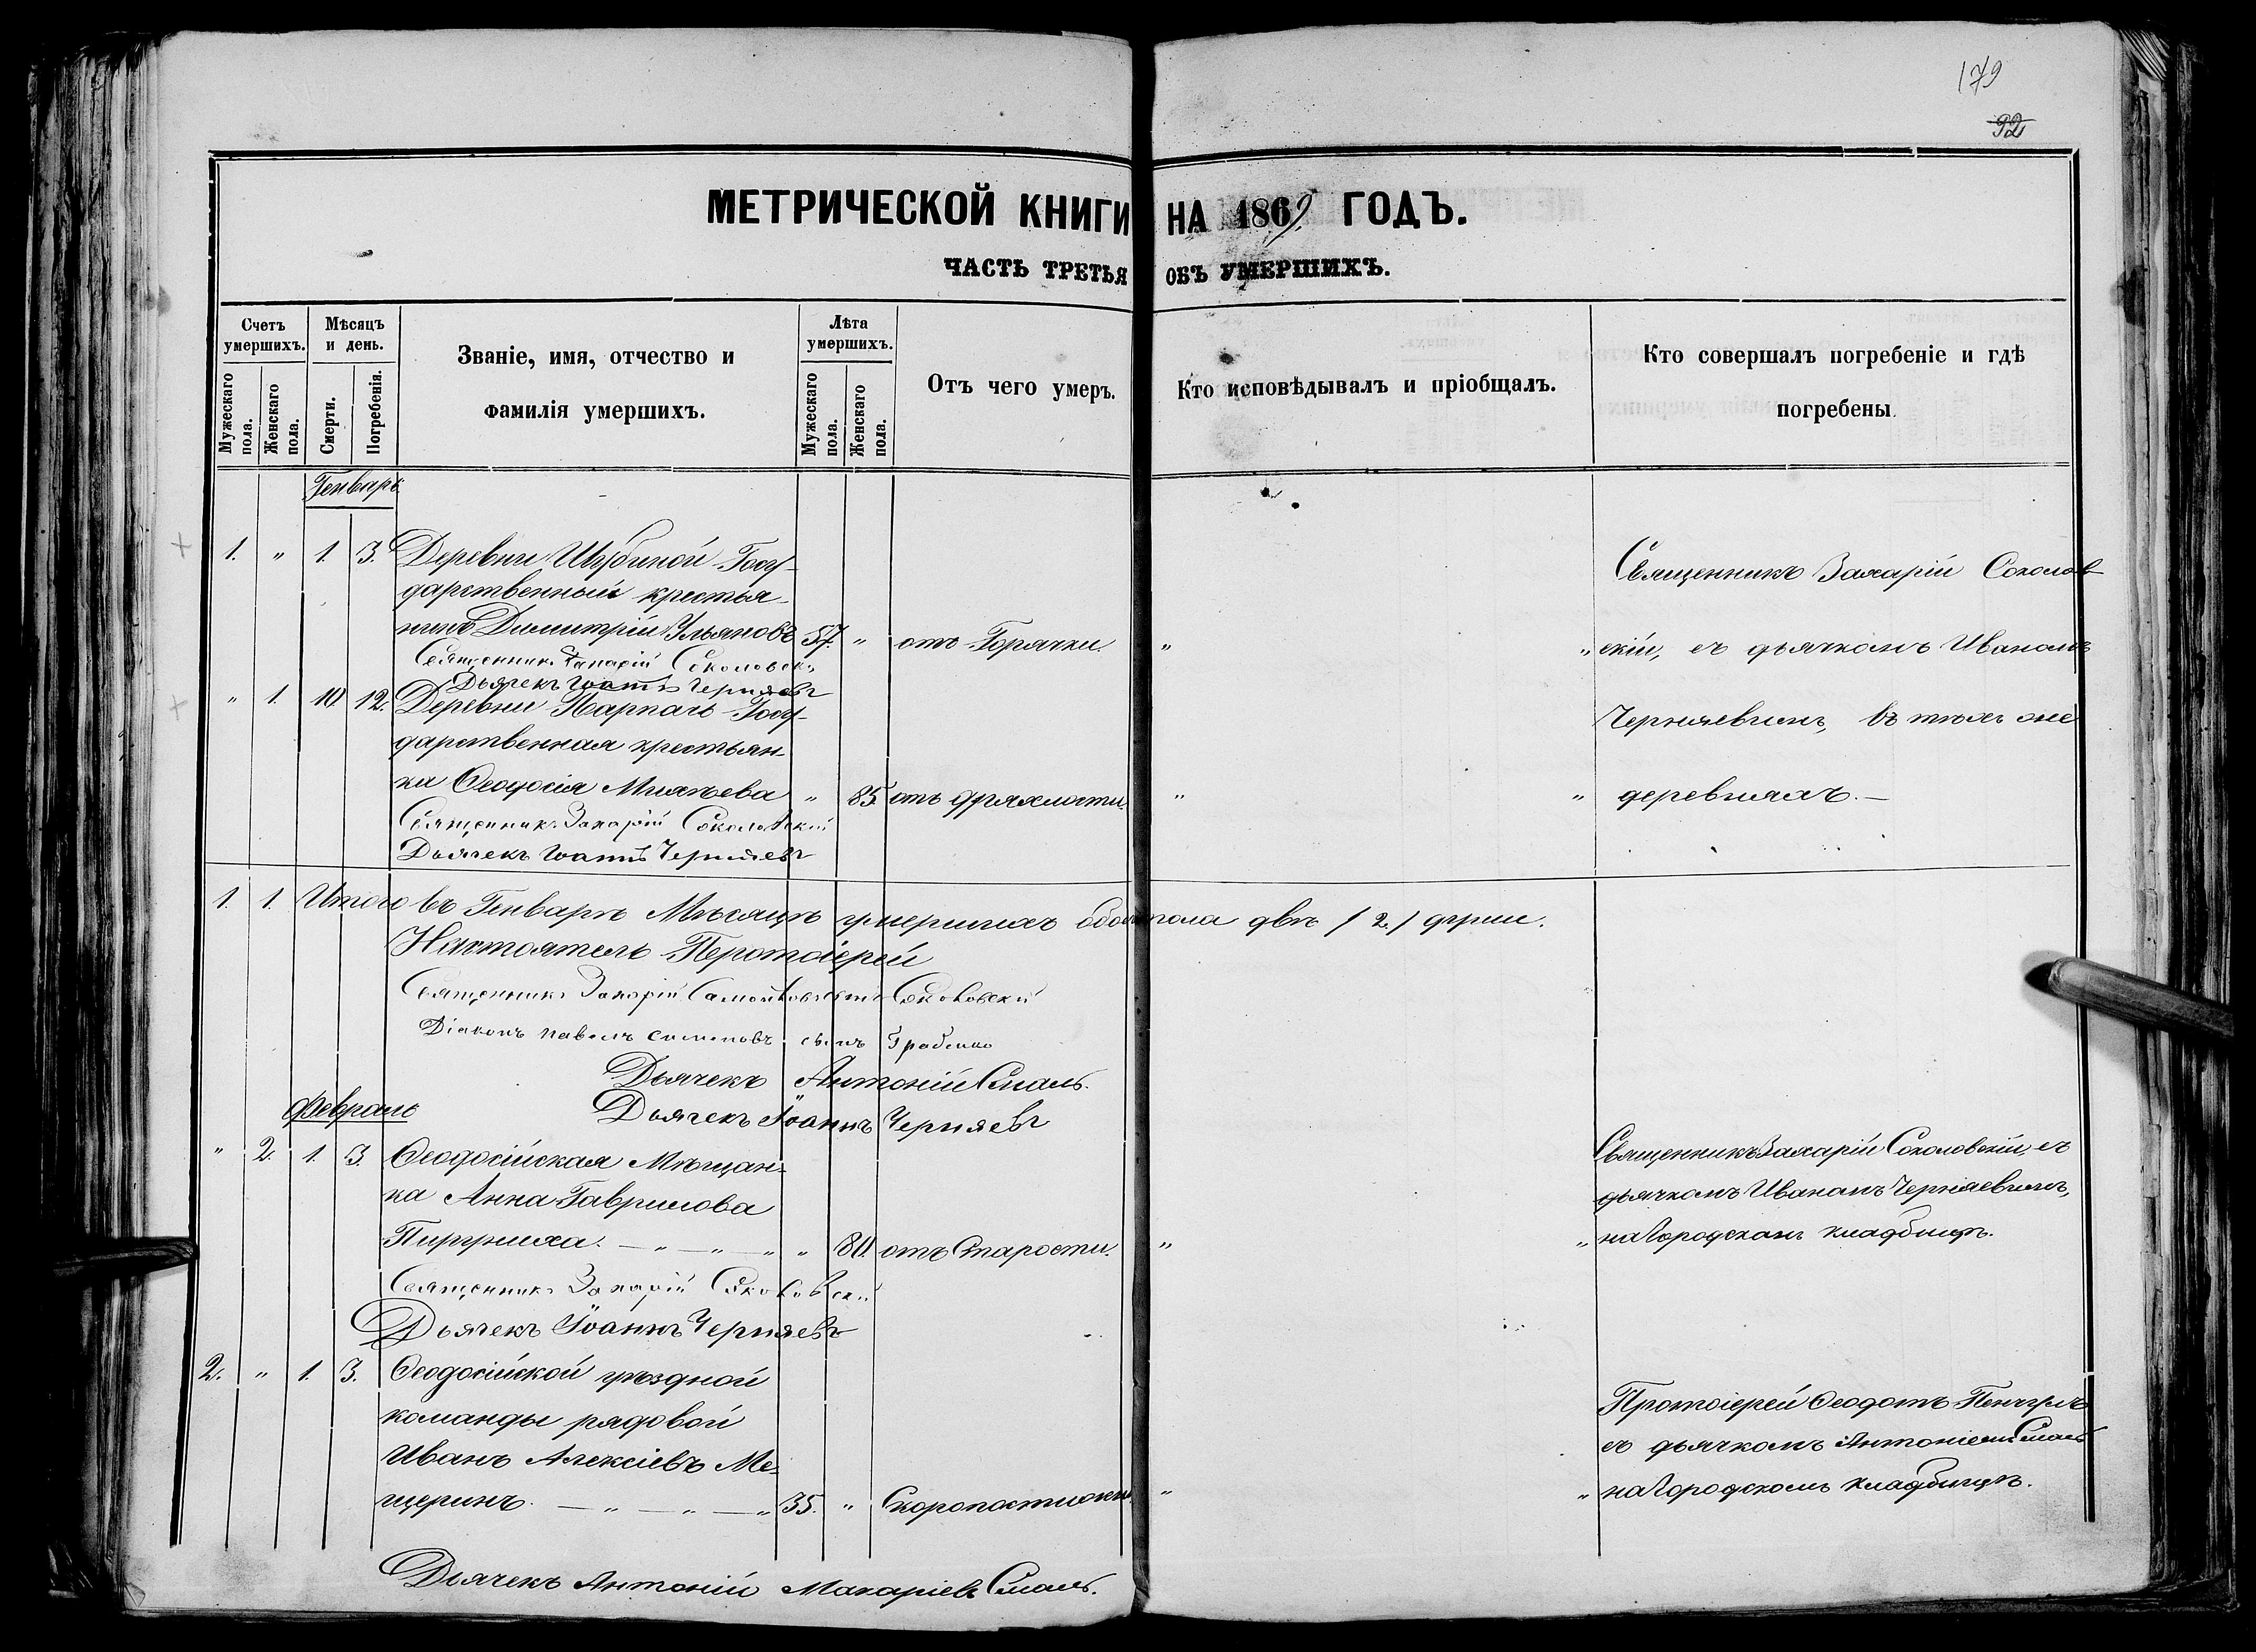 179
92
МЕТРИЧЕСКОЙ КНИГИ НА 1869 ГОДЪ.
ЧАСТЬ ТРЕТЬЯ ОБЪ УМЕРШИХЪ.
Счетъ умершихъ.
Мужескаго пола.
Женскаго пола.
Мѣсяцъ и день.
Смерти.
Погребенія.
Званіе, имя, отчество и
фамилія умершихъ.
Лѣта умершихъ.
Мужескаго пола.
Женскаго пола.
Отъ чего умеръ.
Кто исповѣдывалъ и пріобщалъ.
Кто совершалъ погребеніе и гдѣ
погребены.
Генварь
1. " 1. 3. Деревни Шубиной Госу-
дарственный крестья-
нинъ Димитрій Ульяновъ 57. " отъ Горячки. " "
Священникъ Захарій Соколовск
Дьячекъ Іоаннъ Черняевъ
Священникъ Захарій Соколов
скій, съ дьячкомъ Иваномъ
Черняевымъ, въ тѣхъ же
деревняхъ.—
" 1. 10 12. Деревни Госу-
дарственная крестьян-
ка Ѳеодосія " 85. отъ дряхлости. " "
Священникъ Захарій Соколовскій
Дьячекъ Іоаннъ Черняевъ
1. 1. Итого въ Генварѣ Мѣсяцѣ умершихъ обоего пола двѣ /2/ души.
Настоятель Протоіерей
Священникъ Захарій Соколовскій
Діаконъ Павелъ Симеоновъ сынъ
Дьячекъ Антоній Смаль.
Дьячекъ Іоаннъ Черняевъ
Февраль
" 2. 1. 3. Ѳеодосійская Мѣщан-
ка Анна Гаврилова
— " — " — " " 80 отъ Старости. " "
Священникъ Захарій Соколовскій
Дьячекъ Іоаннъ Черняевъ
Священникъ Захарій Соколовскій, съ
дьячкомъ Иваномъ Черняевымъ,
на Городскомъ кладбищѣ.
2. " 1. 3. Ѳеодосійской уѣздной
команды рядовой
Иванъ Алексіевъ Ме-
щеринъ. — " — " — " 35. " Скоропостижно " "
Протоіерей Ѳеодотъ
съ дьячкомъ Антоніемъ Смаль
на Городскомъ кладбищѣ.
Дьячекъ Антоній Макаріевъ Смаль.